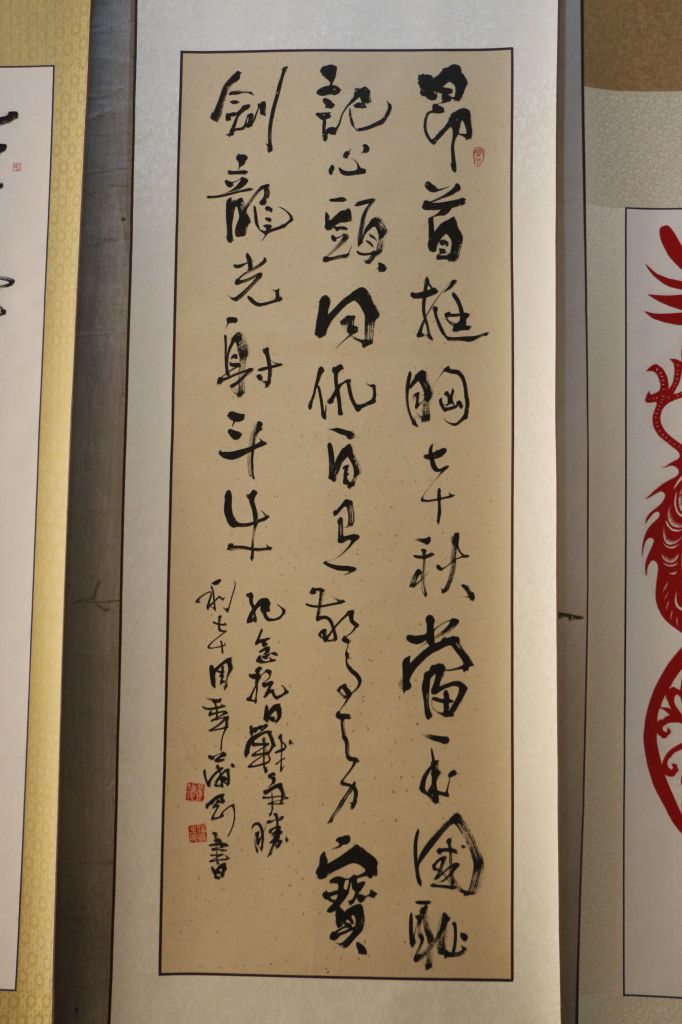 昂首挺胸七十秋當年國恥
記心頭同仇自是驚天力寶
劍龍光射斗牛
紀念抗日戰爭勝
利七十周年剛書